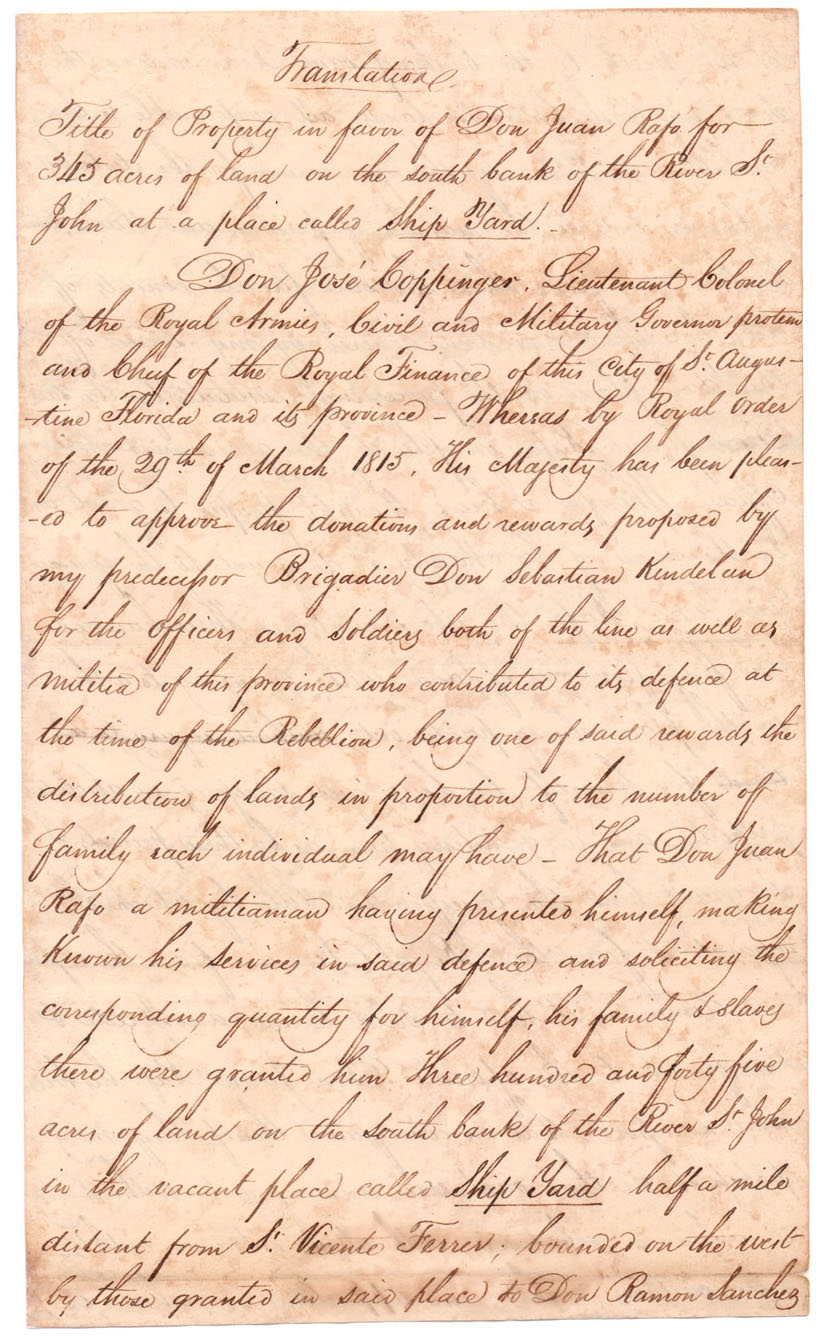 Translation
Title of Property in favor of Don Juan Rafo for
345 acres of land on the south bank of the River St.
John at a place called Ship Yard.-
Don José Coppinger, Lieutenant Colonel
of the Royal Armies, Civil and Military Governor protem
and Chief of the Royal Finance of this City of St. Augus-
-tine Florida and its province - Whereas by Royal Order
of the 29th. of March 1815, His Majesty has been pleas-
-ed to approve the donations and rewards proposed by
my predecessor Brigadier Don Sebastian Kindelan
for the Officers and Soldiers both of the line as well as
militia of this province who contributed to its defence at
the time of the Rebellion, being one of said rewards the
distribution of lands in proportion to the number of
family each individual may have - That Don Juan
Rafo a militiaman having presented himself, making
Known his services in said defence and soliciting the
corresponding quantity for himself, his family & slaves
there were granted him Three hundred and forty five
acres of land on the south bank of the River St. John
in the vacant place called Ship Yard half a mile
distant from St. Vicente Ferrer; bounded on the west
by those granted in said place to Don Ramon Sanchez